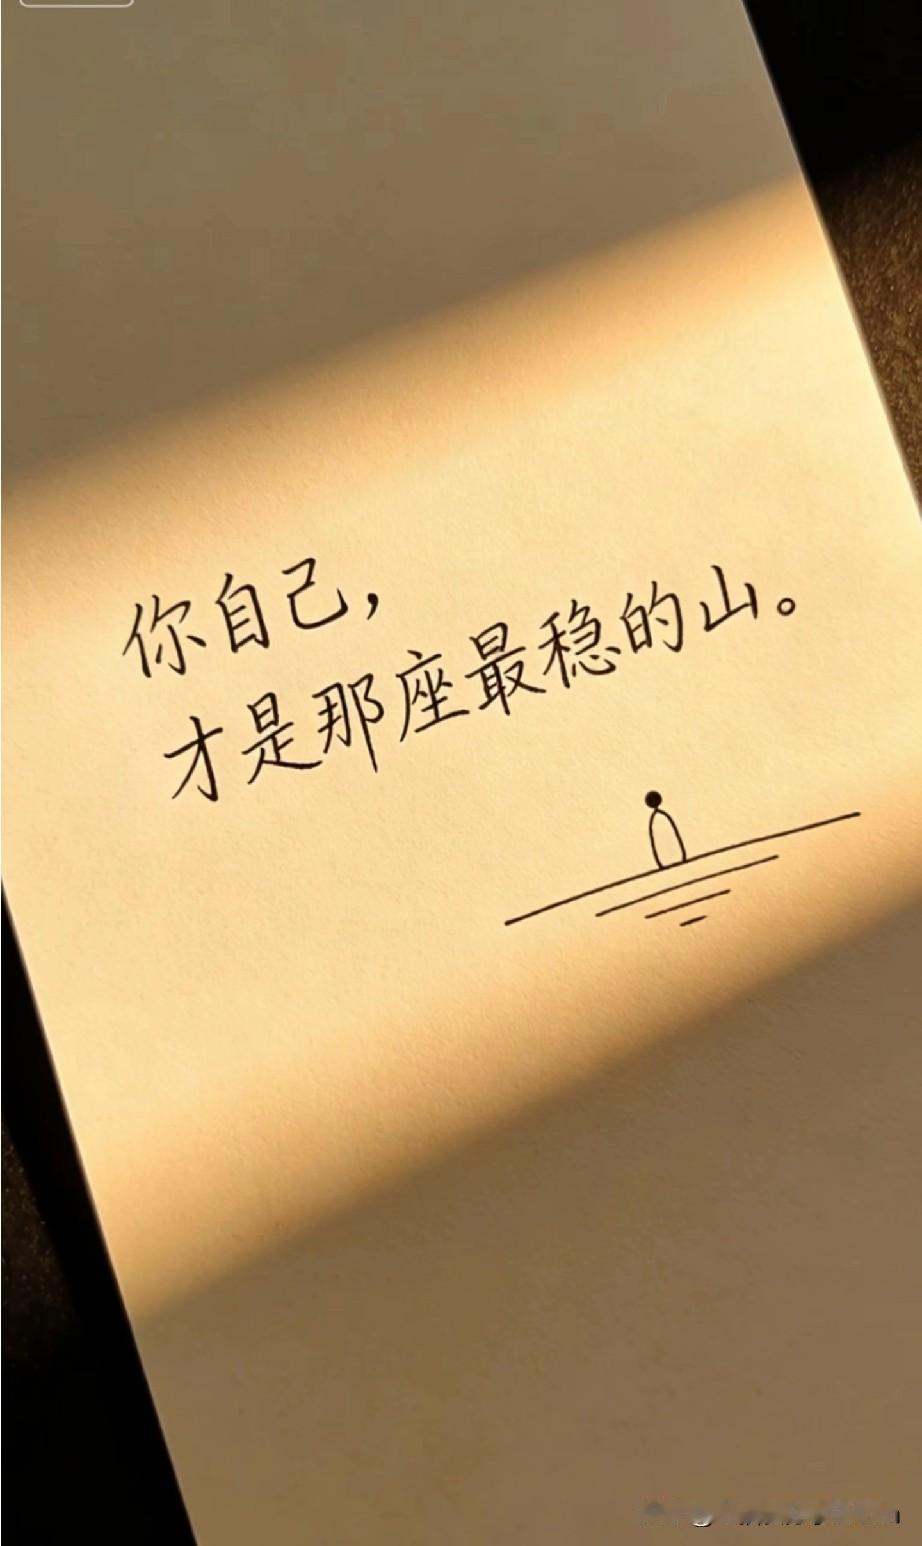 你自己，
才是那座最稳的山。